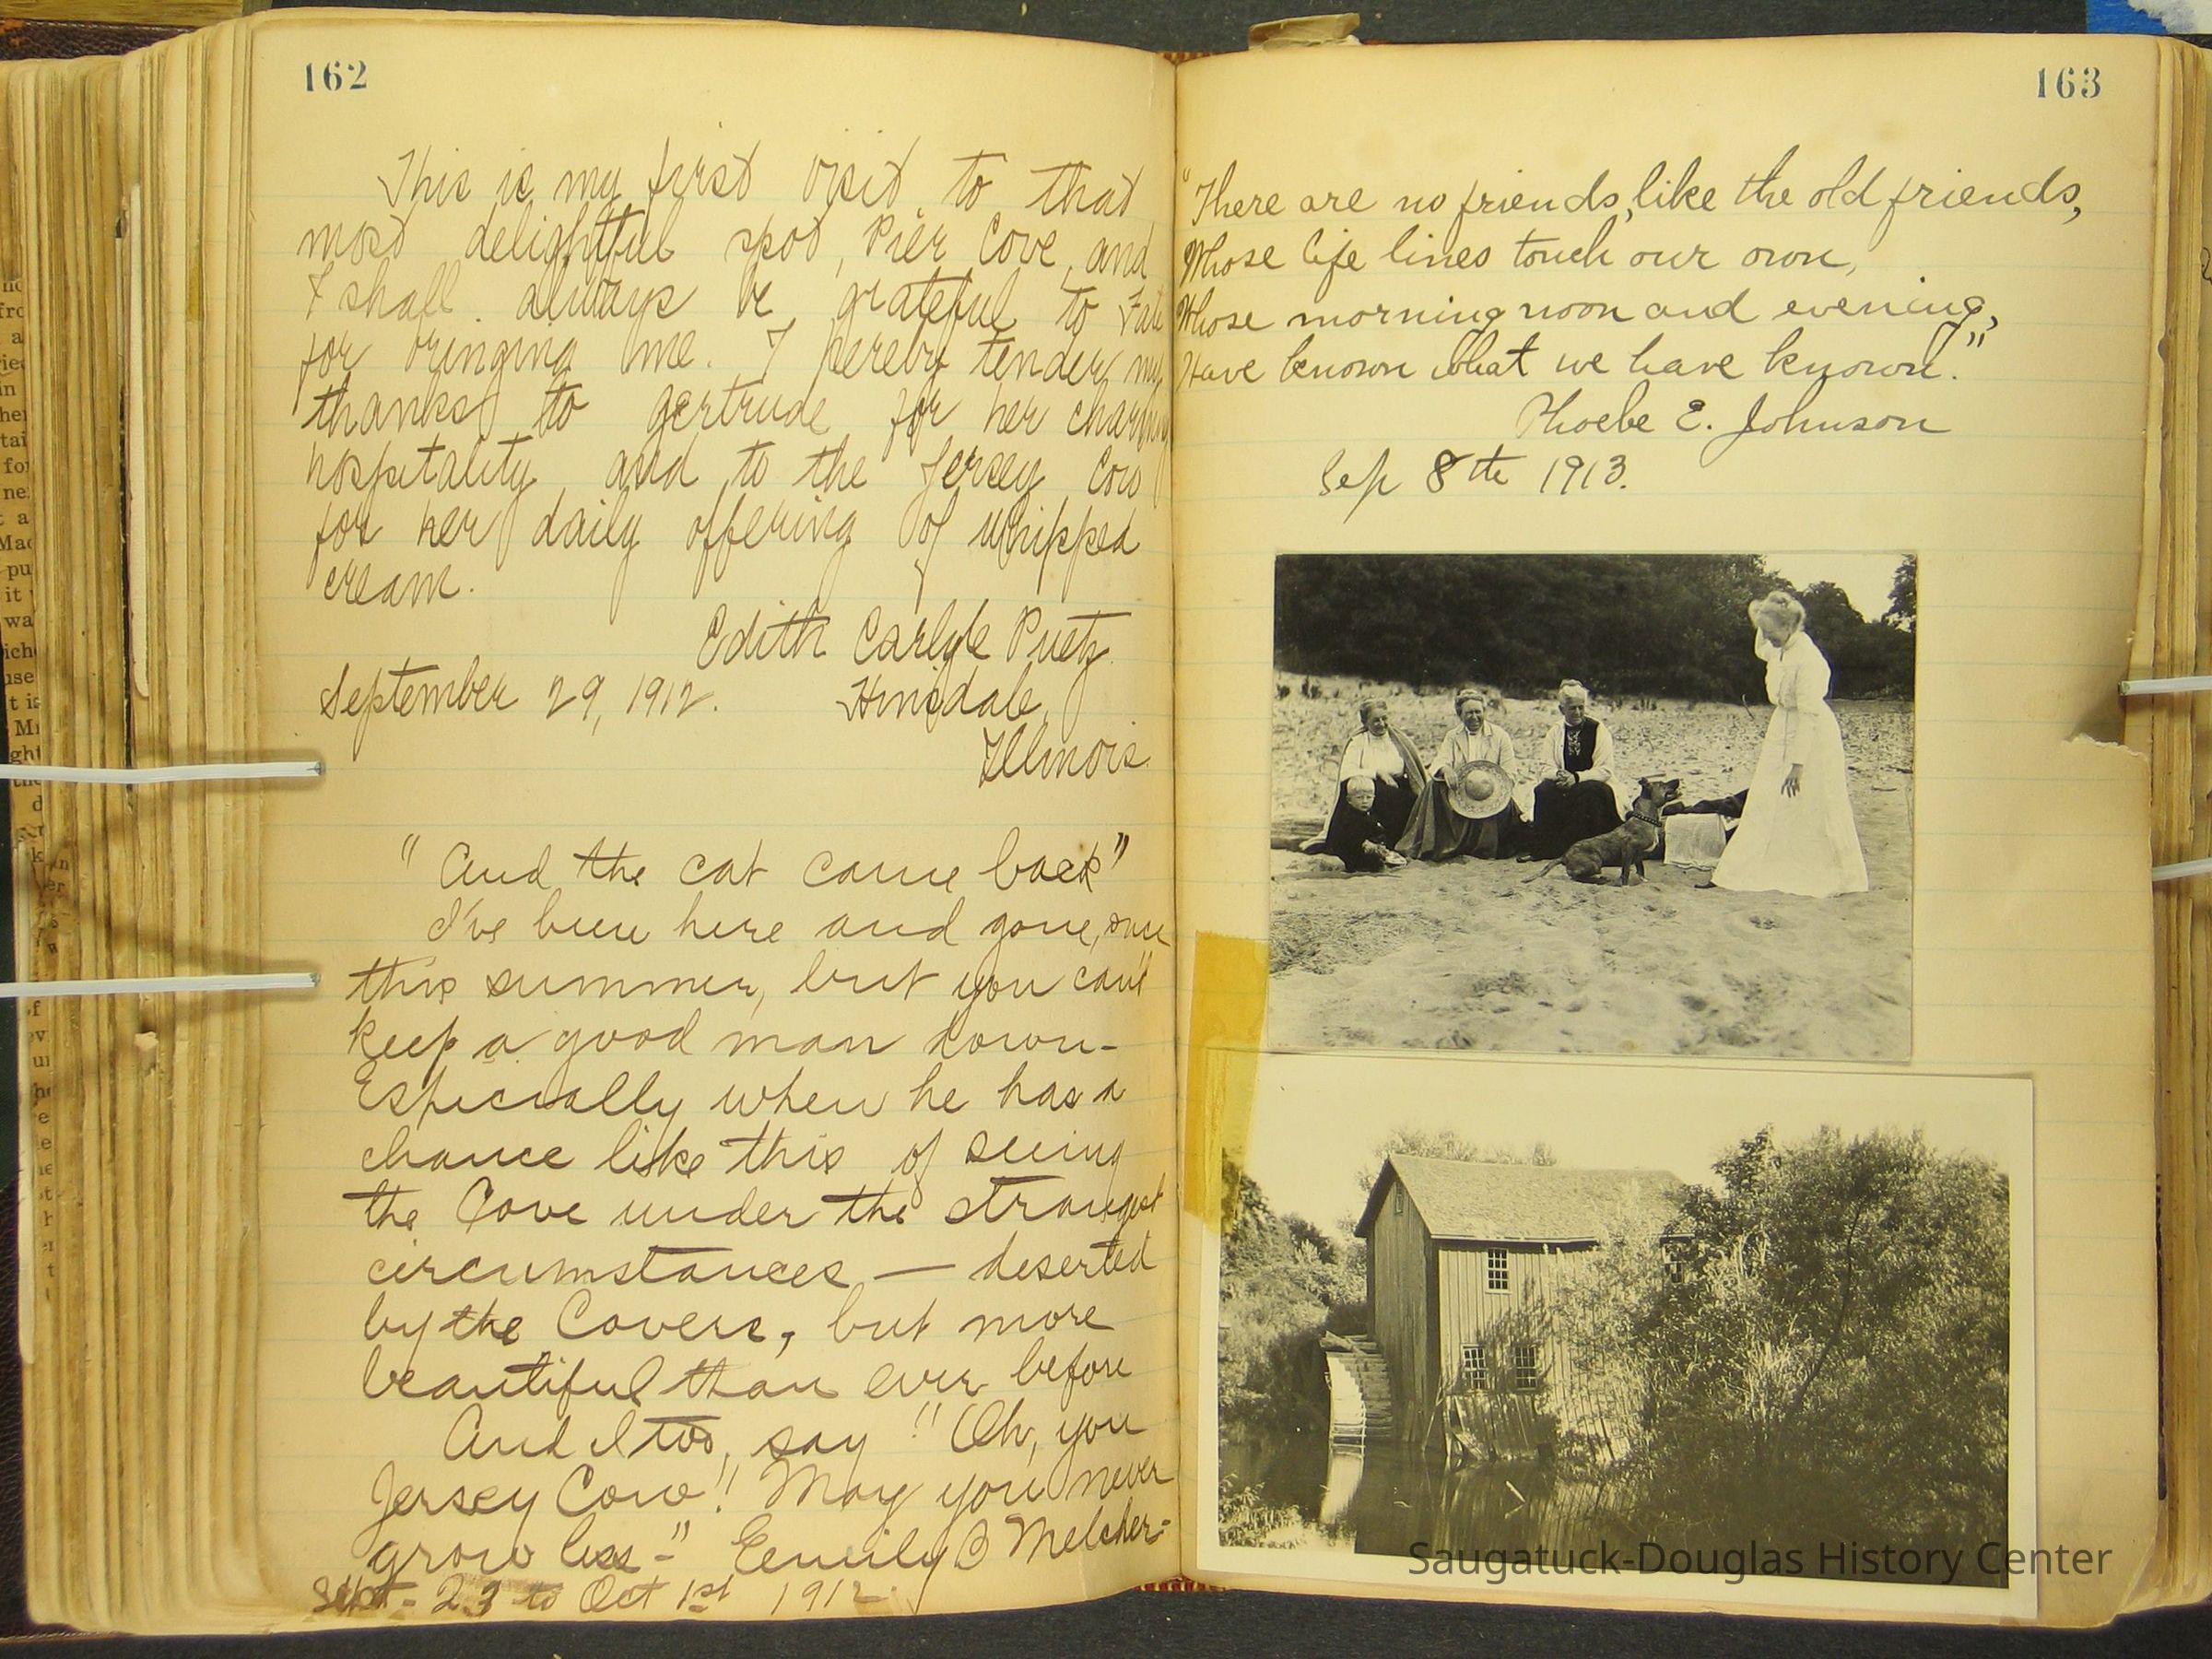 162
This is my first visit to that
most delightful spot, Pier Cove, and
I shall always be grateful to Fate
for bringing me. I hereby tender my
thanks to Gertrude for her charming
hospitality and to the Jersey Cow
for her daily offering of whipped
cream.
Edith Carlyle Puetz.
September 29, 1912. Hinsdale,
Illinois.
"And the cat came back"
I've been here and gone, once
this summer, but you can't
keep a good man down-
Especially when he has a
chance like this of seeing
the Cove under the strangest
circumstances — deserted
by the Covers, but more
beautiful than ever before
And I too, say "Oh, you
Jersey Cow! May you never
grow less-" Emily B Melcher-
Sept- 23 to Oct 1st 1912
163
"There are no friends, like the old friends,
Whose life lines touch our own,
Whose morning noon and evening,
Have known what we have known."
Phoebe E. Johnson
Sep 8th 1913.
Saugatuck-Douglas History Center